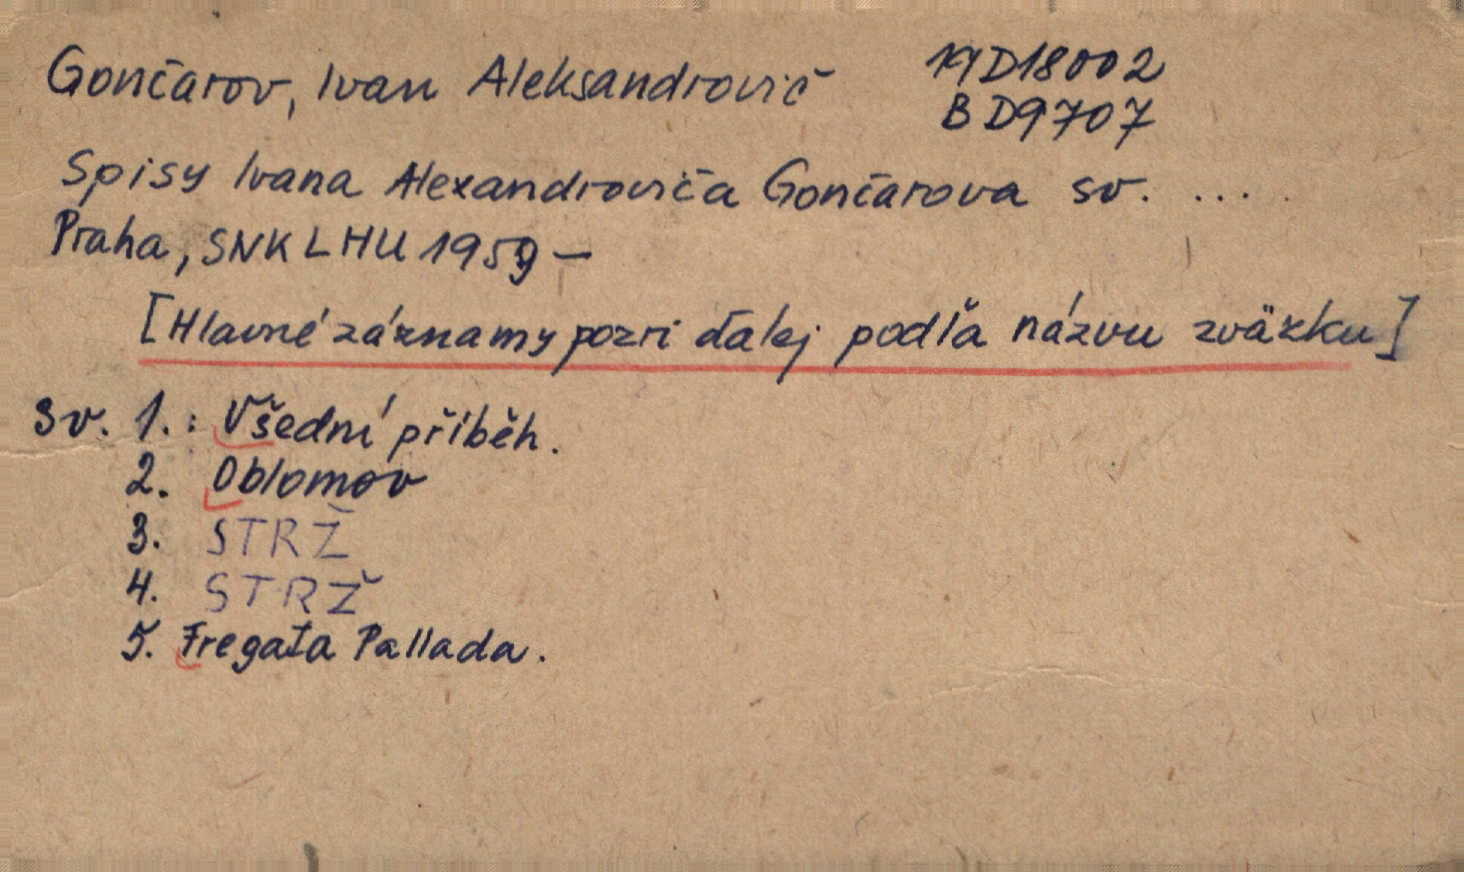 Gončarov, Ivan Aleksandrovič
19D18002
BD9707
Spisy Ivana Alexandroviča Gončarova sv. ....
Praha, SNKLHU 1959 –
[Hlavné záznamy pozri ďalej podľa názvu zväzku]
sv. 1.: Všední příběh.
2. Oblomov
3. STRŽ
4. STRŽ
5. Fregata Pallada.